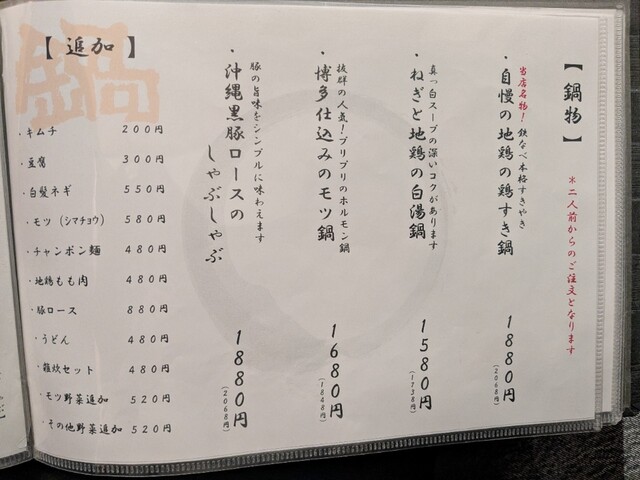 【鍋物】
＊二人前からのご注文となります
当店名物！鉄なべ本格すきやき
・自慢の地鶏の鶏すき鍋 1880円
(2068円)
真っ白スープの深いコクがあります
・ねぎと地鶏の白湯鍋 1580円
(1738円)
抜群の人気！プリプリのホルモン鍋
・博多仕込みのモツ鍋 1680円
(1848円)
豚の旨味をシンプルに味わえます
・沖縄黒豚ロースの
しゃぶしゃぶ 1880円
(2068円)
鍋
【追加】
・キムチ 200円
・豆腐 300円
・白髪ネギ 550円
・モツ（シマチョウ） 580円
・チャンポン麺 480円
・地鶏もも肉 480円
・豚ロース 880円
・うどん 480円
・雑炊セット 480円
・モツ野菜追加 520円
・その他野菜追加 520円